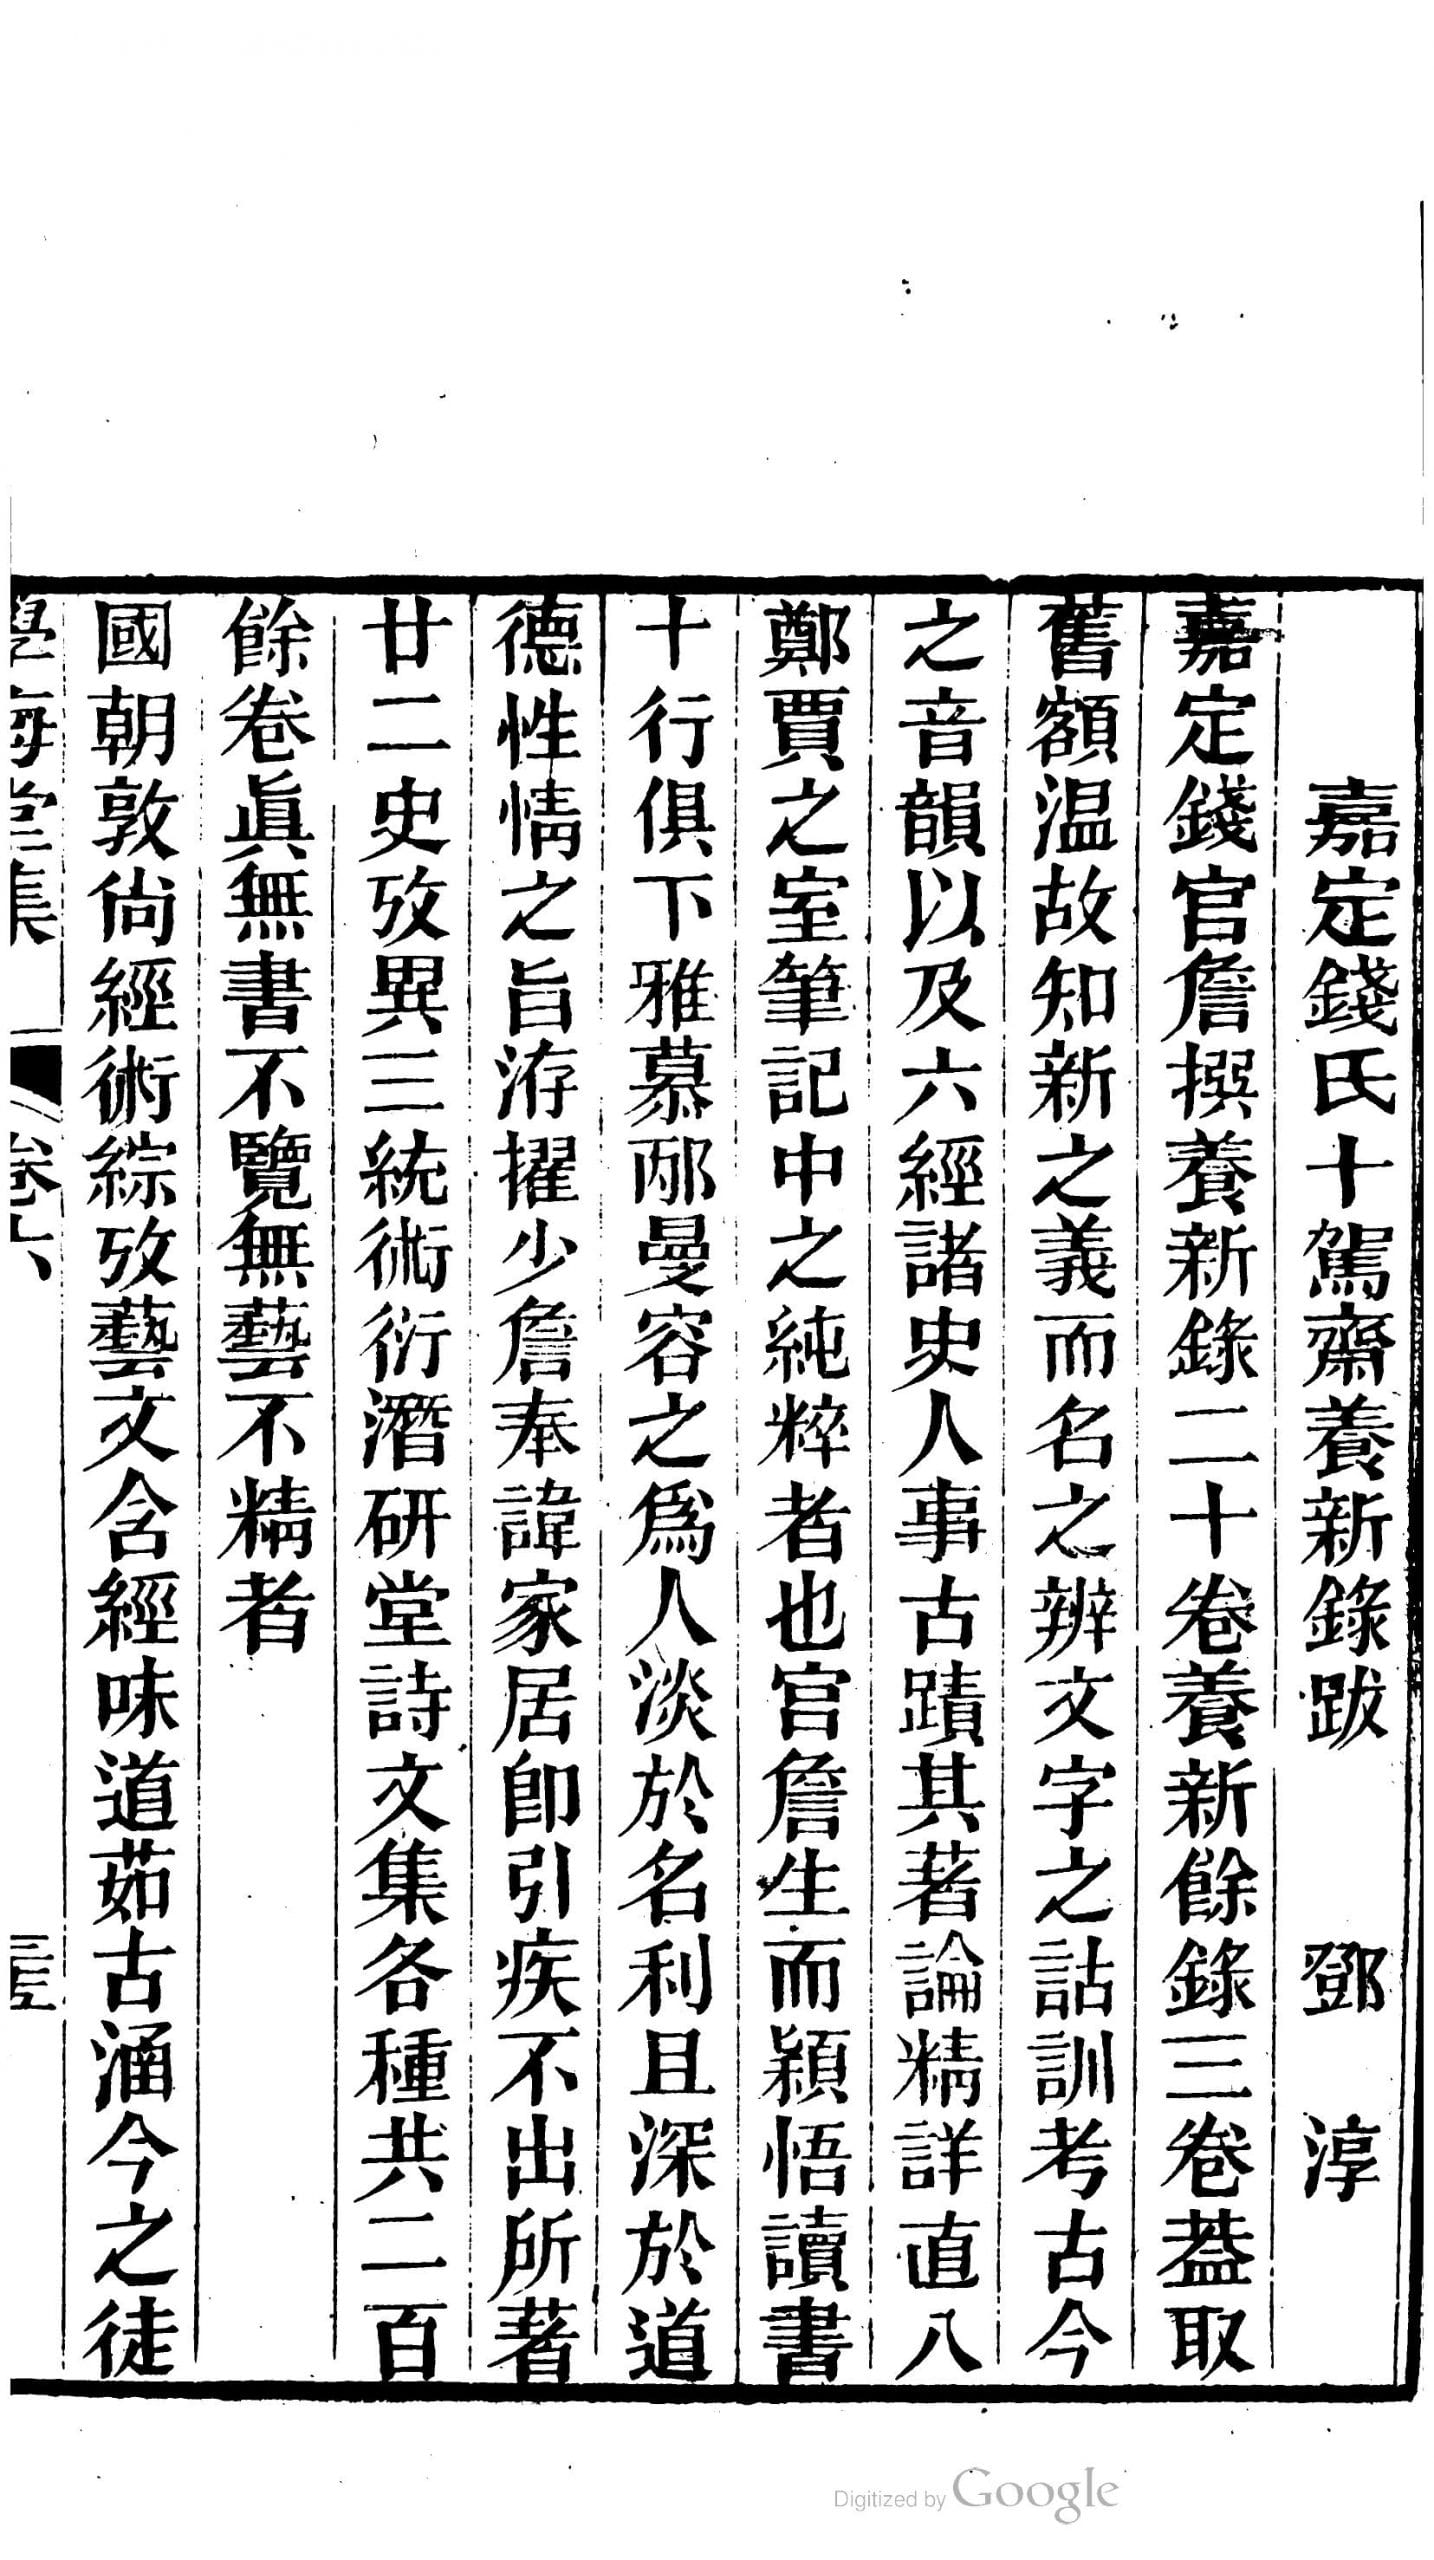 嘉定錢氏十駕齋養新錄跋　鄧　淳
嘉定錢官詹撰養新錄二十卷養新餘錄三卷葢取
舊額温故知新之義而名之辨文字之詁訓考古今
之音韻以及六經諸史人事古蹟其著論精詳直入
鄭賈之室筆記中之純粹者也宫詹生而穎悟讀書
十行俱下雅慕邴曼容之爲人淡於名利且深於道
德性情之旨洊擢少詹奉諱家居卽引疾不出所著
廿二史攷異三統術衍潛研堂詩文集各種共二百
餘卷眞無書不覽無藝不精者
國朝敦尙經術綜攷藝文含經味道茹古涵今之徒
學海堂集　卷六
Digitized by Google